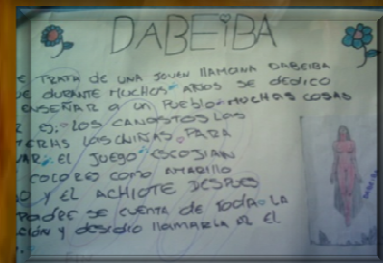 DABEIBA
TRATA DE UNA JOVEN LLAMADA DABEIBA
DURANTE MUCHOS AÑOS SE DEDICO
ENSEÑAR a UN PUEBLO MUCHAS COSAS
ES: LOS CANASTOS LOS
LAS CHINAS PARA
EL JUEGO ESCOJIAN
COLORES COMO AMARILLO
Y EL ACHIOTE DESPUES
PADRE SE CUENTA DE TODA LA
Y desidio llamarla EL
DABEIBA